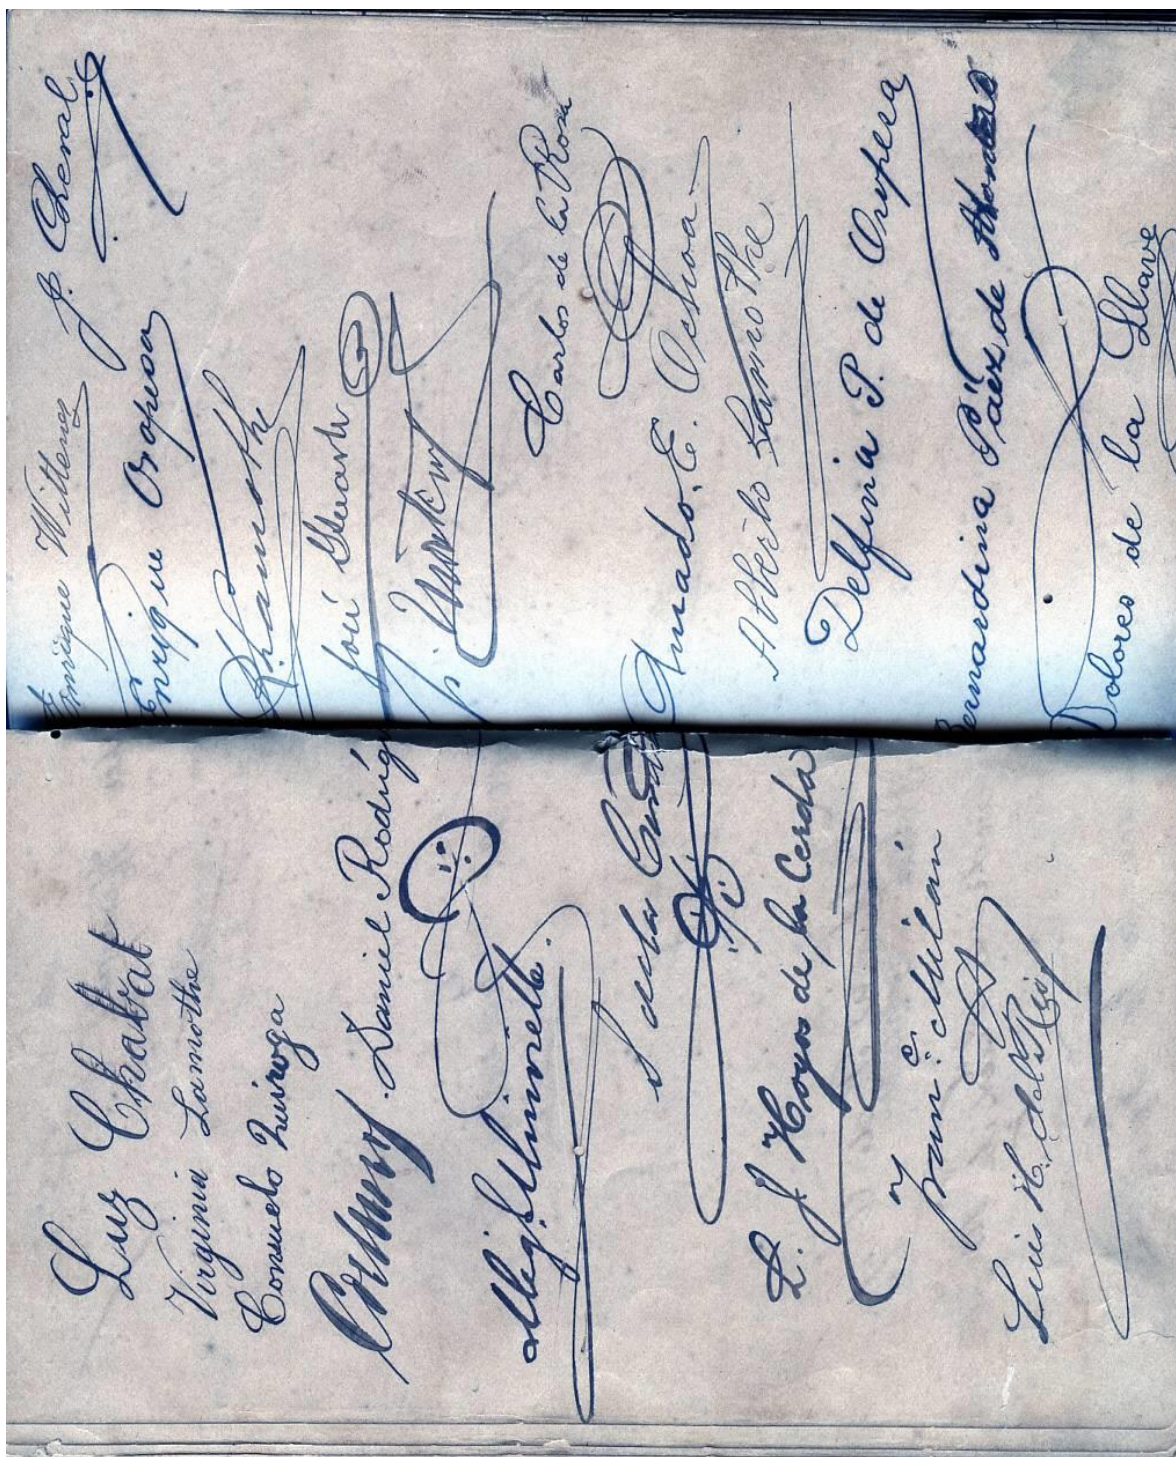 Luz Chabat
Virginia Lamothe
Consuelo Quiroga
Daniel Rodríg
S de la
L. J. Hoyos de la Cerda
Juan C. Milán
Luis H. del Rio
Enrique Witteney J. Cheral
Enrique Oropesa
R. Lamothe
José
Carlos de la Rosa
Amado E. Ochoa
Alberto Lamothe
Delfina P. de Oropesa
Bernardina Páez de
Dolores de la Llave